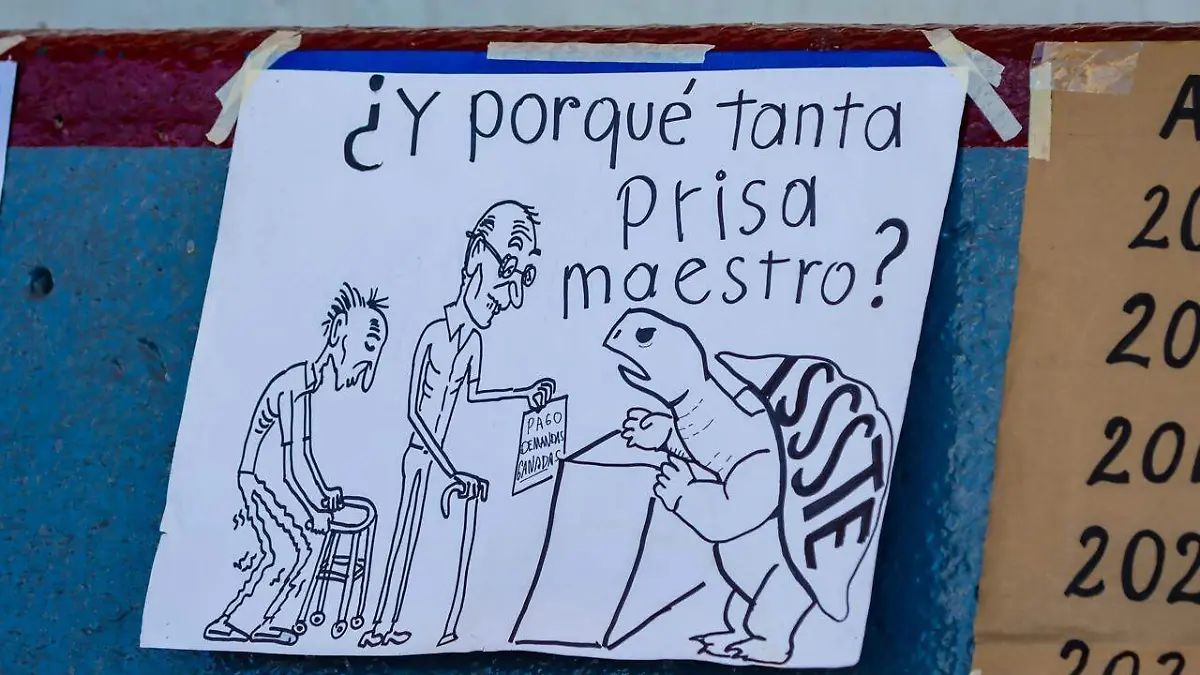 ¿Y porqué tanta
prisa
maestro?
PAGO
DEMANDAS
GANADAS
ISSSTE
A
20
20
201
202
202